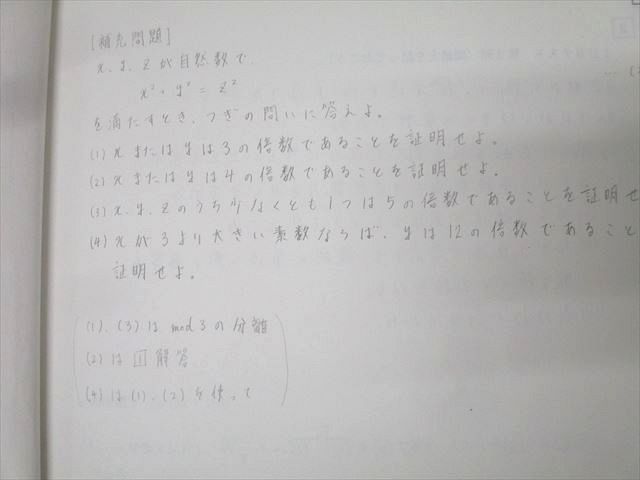 [補充問題]
x, y, z が自然数で
x² + y² = z²
を満たすとき、つぎの問いに答えよ。
(1) x または y は 3 の倍数であることを証明せよ。
(2) x または y は 4 の倍数であることを証明せよ。
(3) x, y, z のうち少なくとも 1 つは 5 の倍数であることを証明せ
(4) x が 3 より大きい素数ならば、y は 12 の倍数であること
証明せよ。
(1)、(3) は mod 3 の分離
(2) は 1 解答
(4) は (1)、(2) を使って